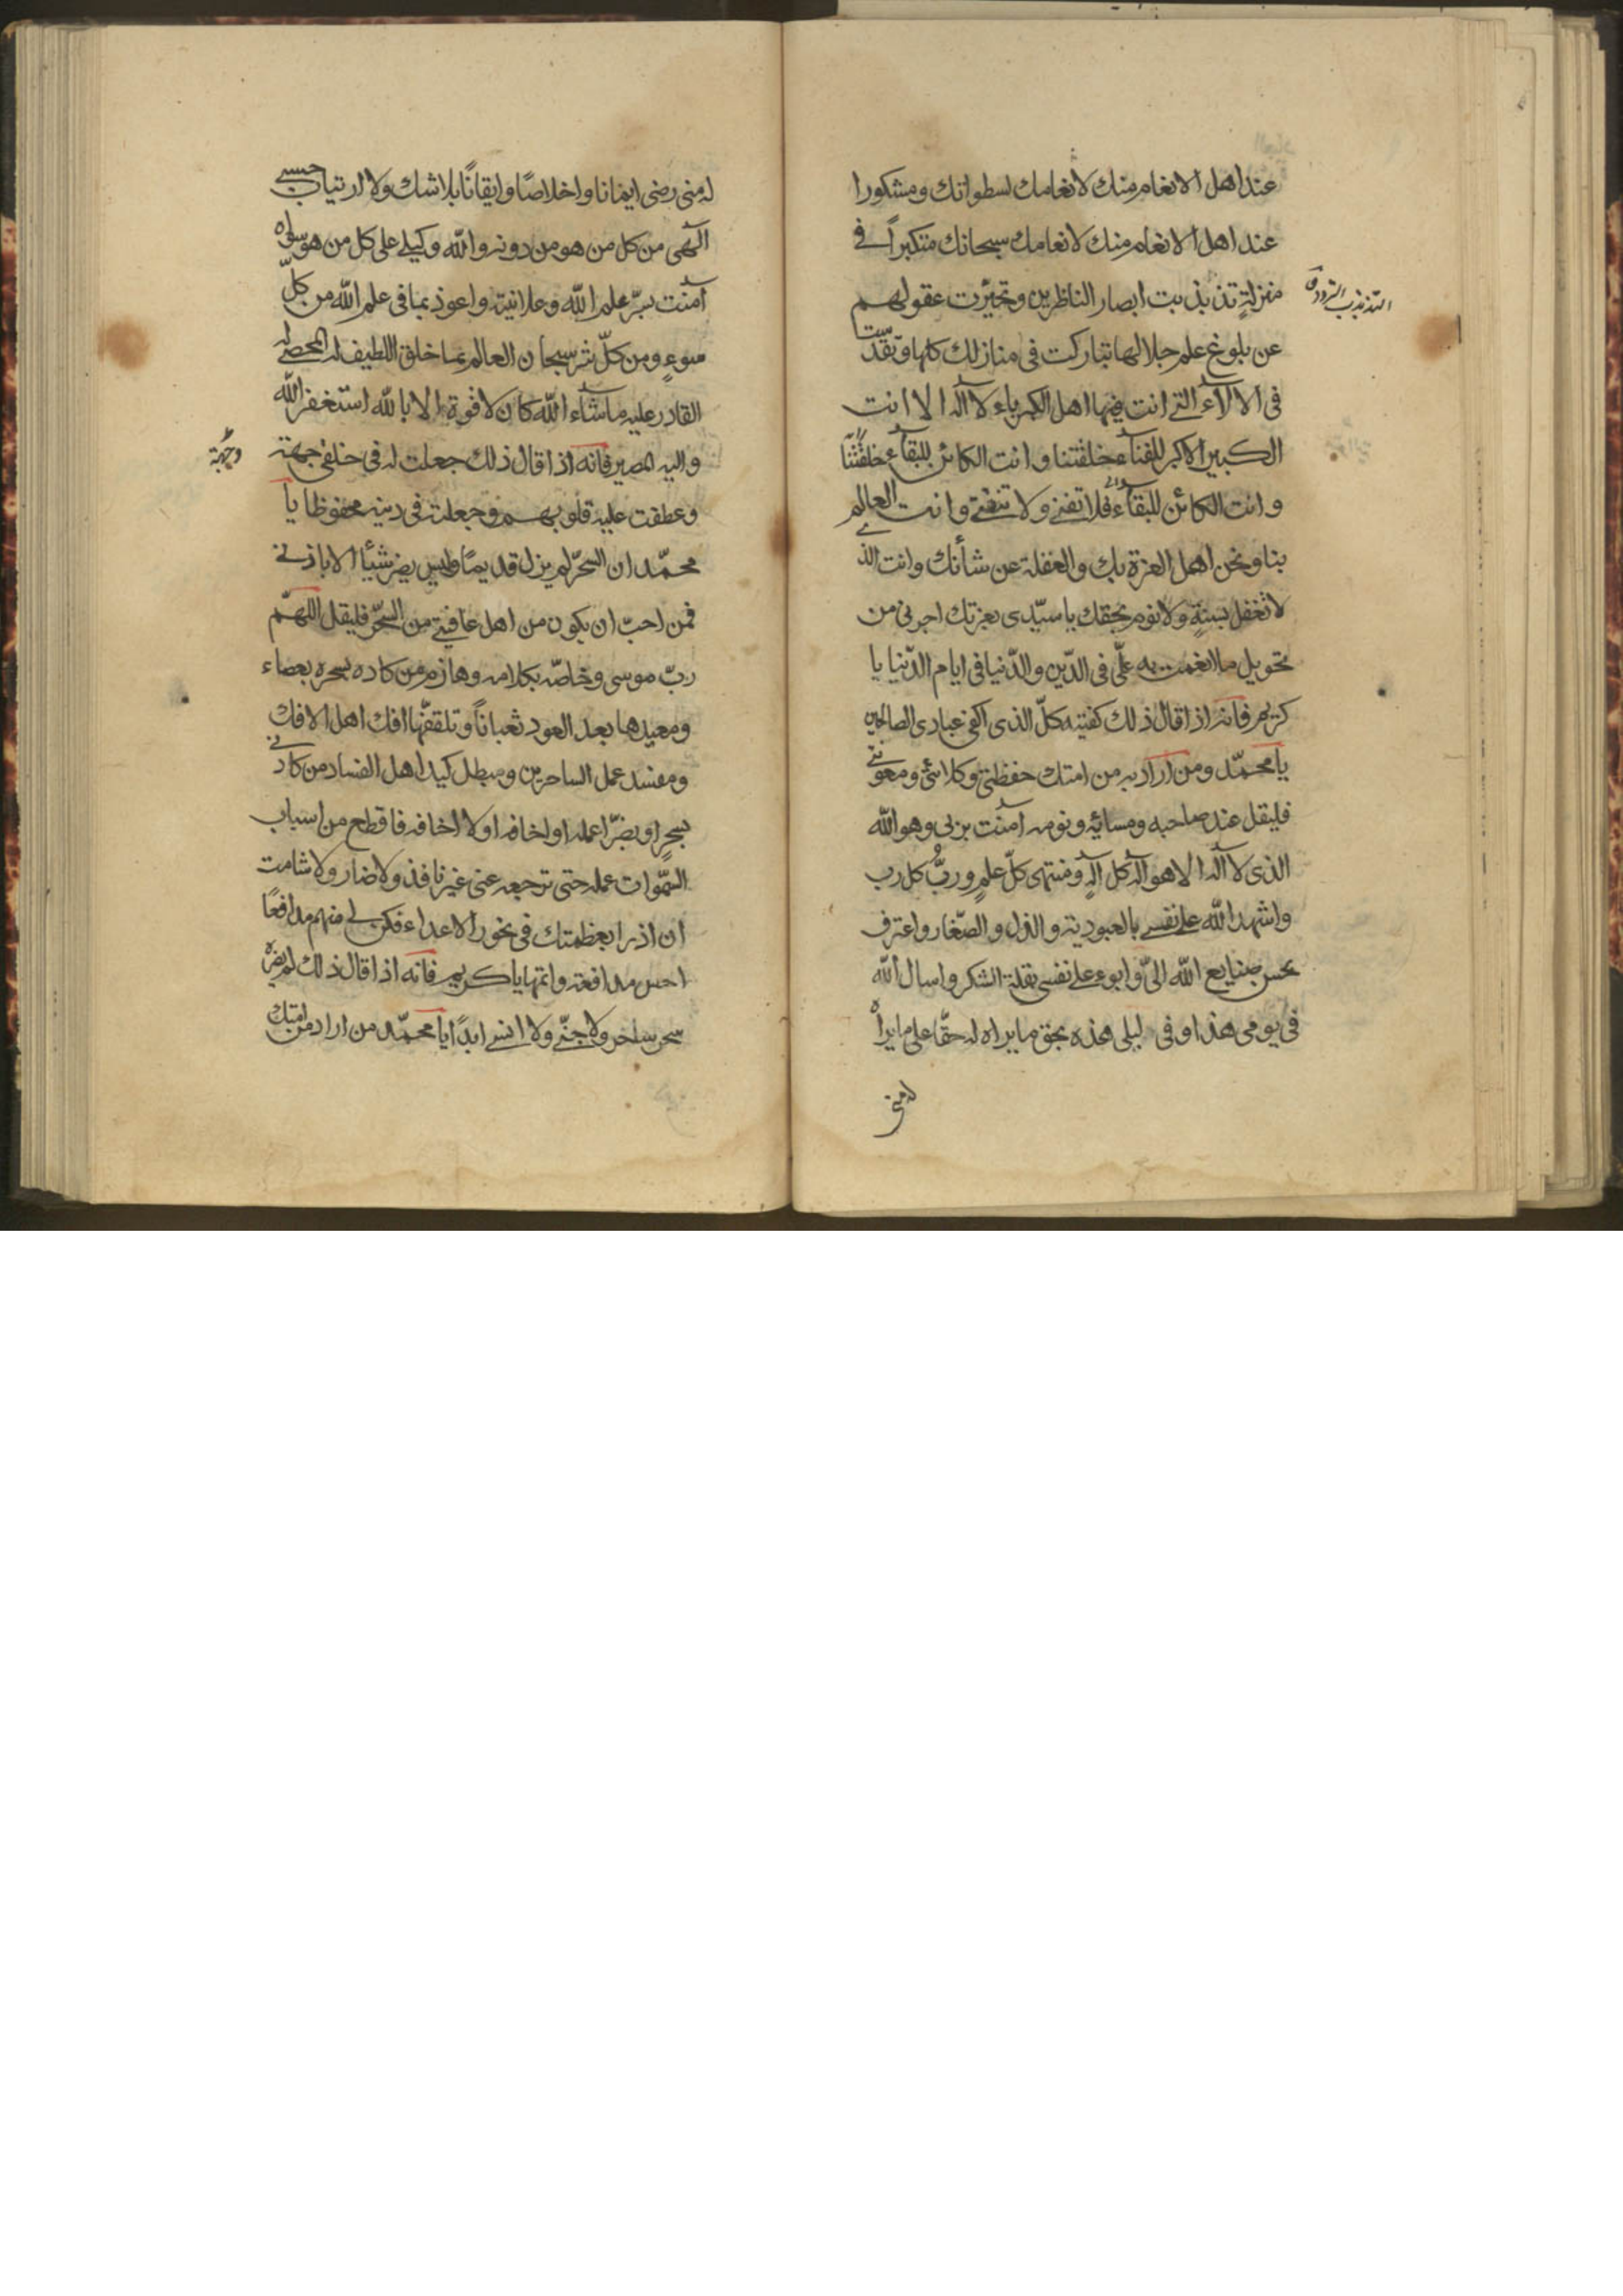 عند اهل الانغام منك لانغامك لسطواتك ومشكورا
عند اهل الانغام منك لانعامك سبحانك متكبراً في
منزلةٍ تذبذبت ابصار الناظرين وتحيّرت عقولهم
التذبذب التردد
عن بلوغ علم جلالها تباركت فى منازلك كلها وتقدّست
فى الآلآء التى انت فيها اهل الكبرياء لا آله الا انت
الكبير الاكبر للفنآء خلقتنا وانت الكائن للبقآء خلقتنا
وانت الكائن للبقآء فلا تفنى ولا تنقى وانت العالم
بنا ونحن اهل العزة بك والغفلة عن شأنك وانت الذى
لا تغفل بسنةٍ ولا نوم بحقك يا سيّدى بعزتك اجرنى من
تحويل ما انغمت به علّى فى الدّين والدّنيا فى ايام الدّنيا يا
كريم فانه اذا قال ذلك كفيته كلّ الذى اكفى عبادى الصالحين
يا محمّد ومن اراد به من امتك حفظتى وكلائتى ومعونتى
فليقل عند صباحه ومسائه ونومه آمنت بربى وهو الله
الذى لا آله الا هو آله كل آلهٍ ومنتهى كلّ علمٍ وربُّ كل رب
واشهد الله على نفسى بالعبودية والذل والصّغار واعترف
بحسن صنايع الله الىّ وابوء على نفسى بقلة الشكر واسال الله
فى يومى هذا وفى ليلى هذه بحق ما يراه له حقّا على ما يراه
له منى
له منى رضى ايمانا واخلاصًا وايقانًا بلا شك ولا ارتياب حسبى
آلهى من كل من هو من دونه والله وكيلى على كل من هو سواه
آمنت بسّر علم الله وعلانيته واعوذ بما فى علم الله من كلّ
سوءٍ ومن كلّ شر سبحان العالم بما خلق اللطيف له المحصى له
القادر عليه ماشآء الله كان لا قوة الا بالله استغفر الله
واليه المصير فانه اذا قال ذلك جعلت له فى خلقى جهة
وجهة
وعطفت عليه قلوبهم وجعلته فى دينه محفوظا يا
محمّد ان السحّر لم يزل قديمًا وليس يضر شيئًا الا باذنى
فمن احبّ ان يكون من اهل عافيتى من السّحر فليقل اللهم
ربّ موسى وخاصّه بكلامه وهازم من كاده بسحره بعصاء
ومعيدها بعد العود ثعباناً وتلقفّها افك اهل الافك
ومفسد عمل الساحرين ومبطل كيد اهل الفساد من كادنى
بسحرٍ او بضّر اعمله او اخافه او لا اخافه فاقطع من اسباب
السّموات عمله حتى ترجعه عنى غير نافذ ولا ضار ولا شامت
ان اذرا بعظمتك فى نحور الاعداء فكن لى منهم مدافعًا
احسن مدافعة واتمها يا كريم فانه اذا قال ذلك لم يضره
سحر ساحر ولا جنّى ولا انسى ابدًا يا محمّد من اراد من امتك